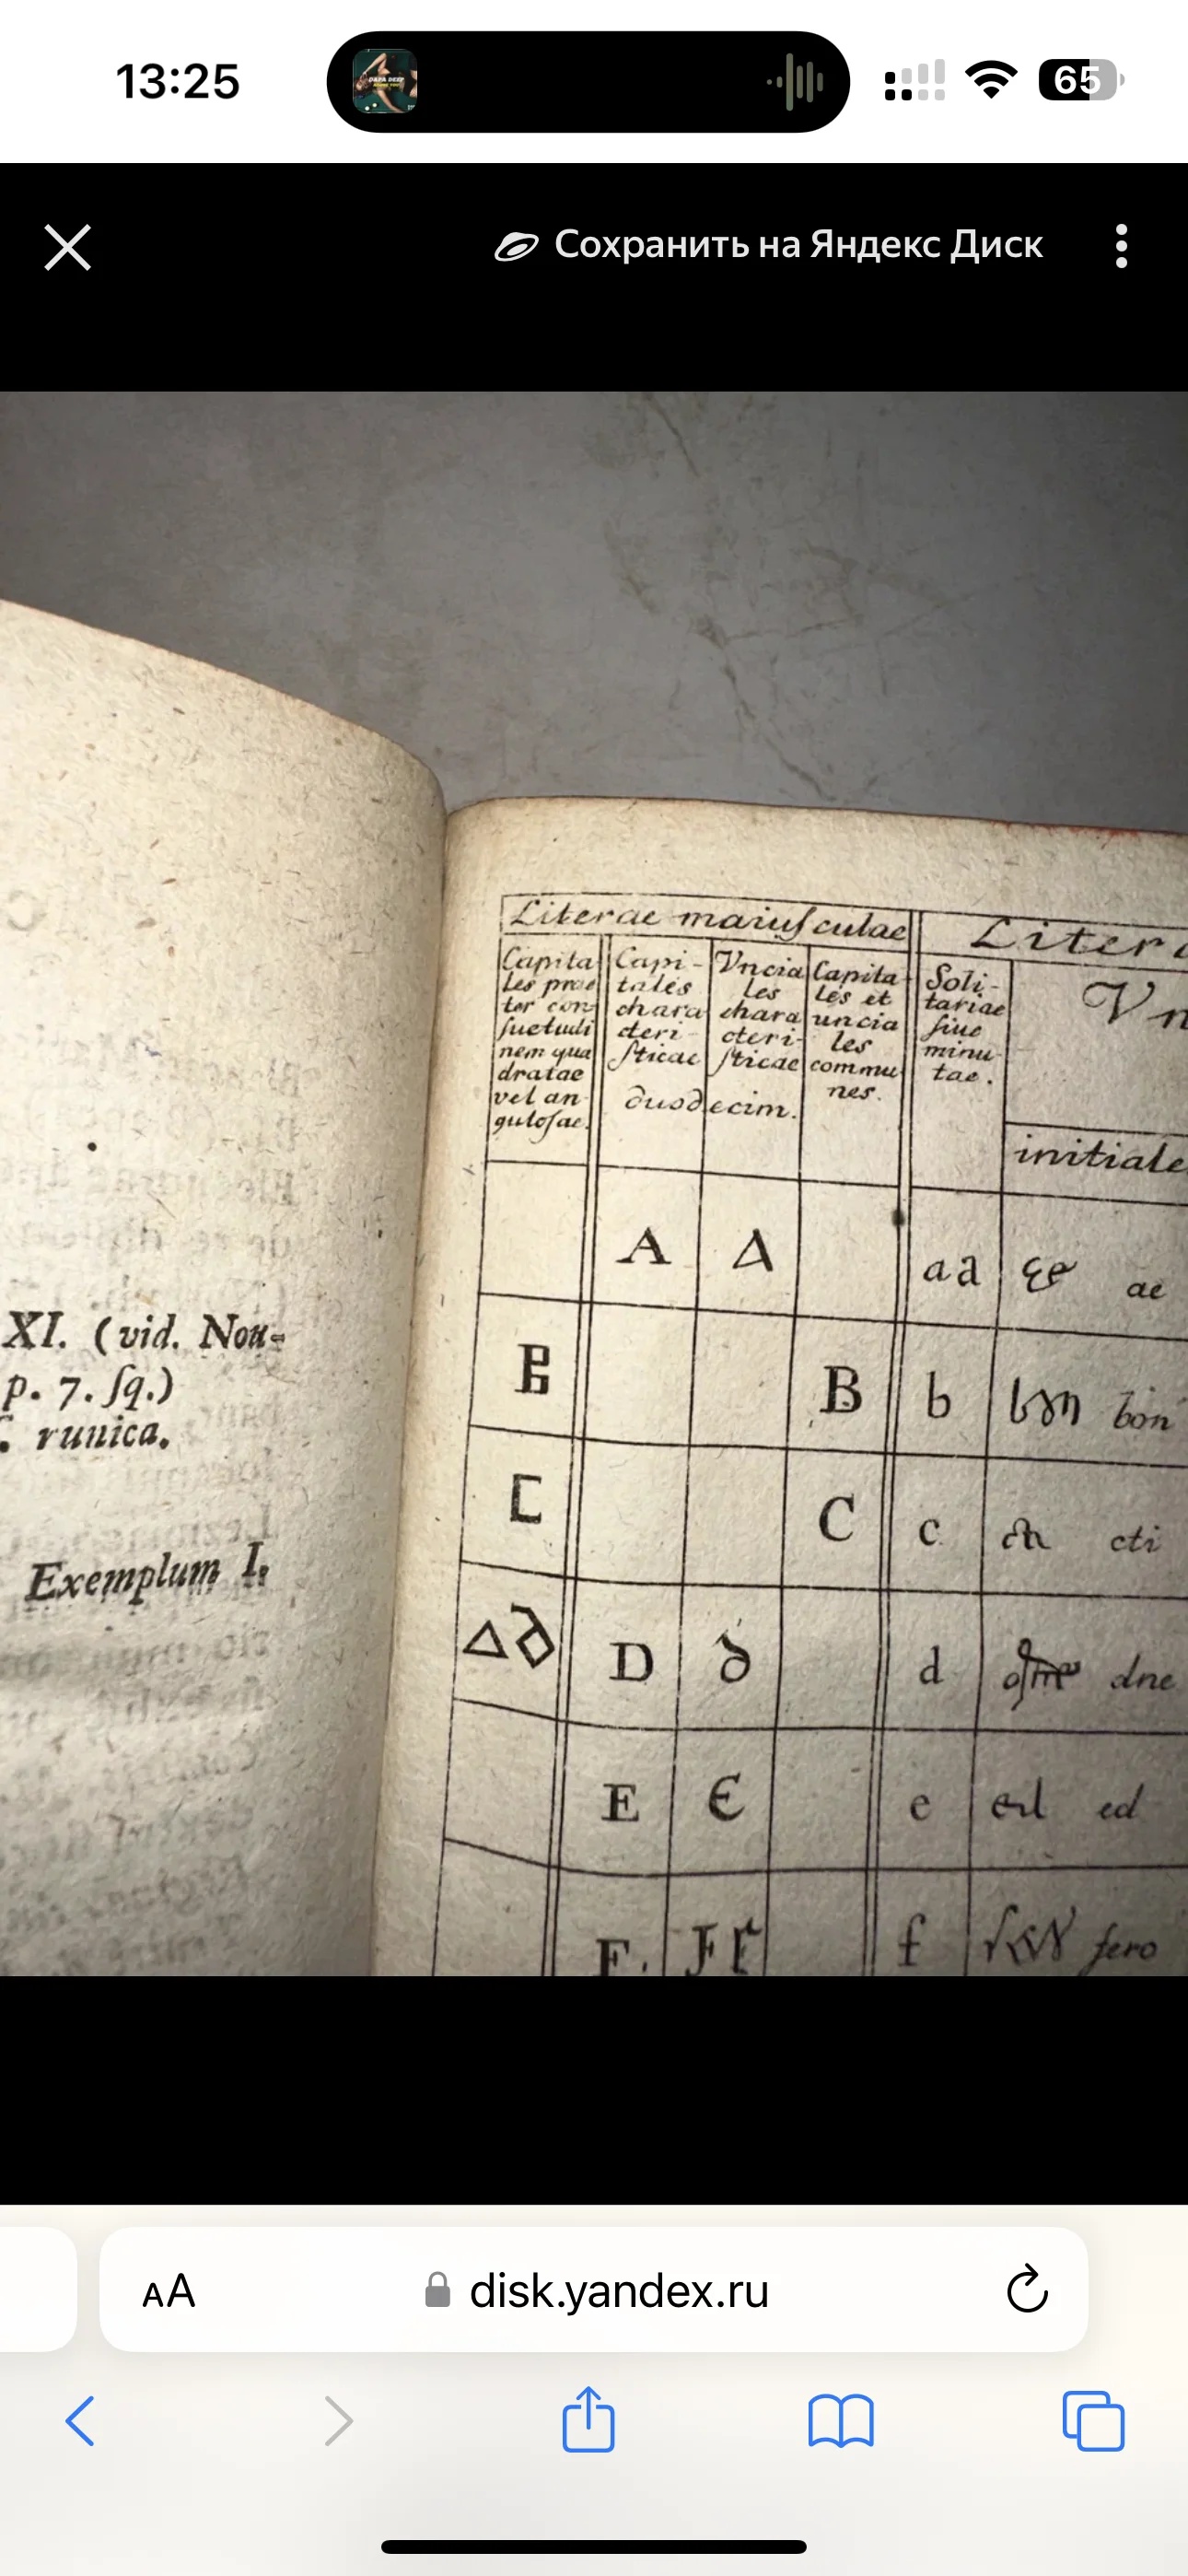 13:25
65
Сохранить на Яндекс Диск
XI. (vid. Nou-
p. 7. ſq.)
runica.
Exemplum I.
Literae maiuſculae
Capita
les prae
ter con-
ſuetudi
nem qua
dratae
vel an-
guloſae.
Capi-
tales
chara
cteri-
ſticae
Vncia
les
chara
cteri-
ſticae
duodecim.
Capita
les et
uncia
les
commu
nes.
Liter
Soli-
tariae
ſiue
minu-
tae.
Vn
initiale
A
a a
ae
B
B
b
bon
C
C
c
cti
D
d
dne
E
Є
e
ed
F.
f
fero
AA
disk.yandex.ru